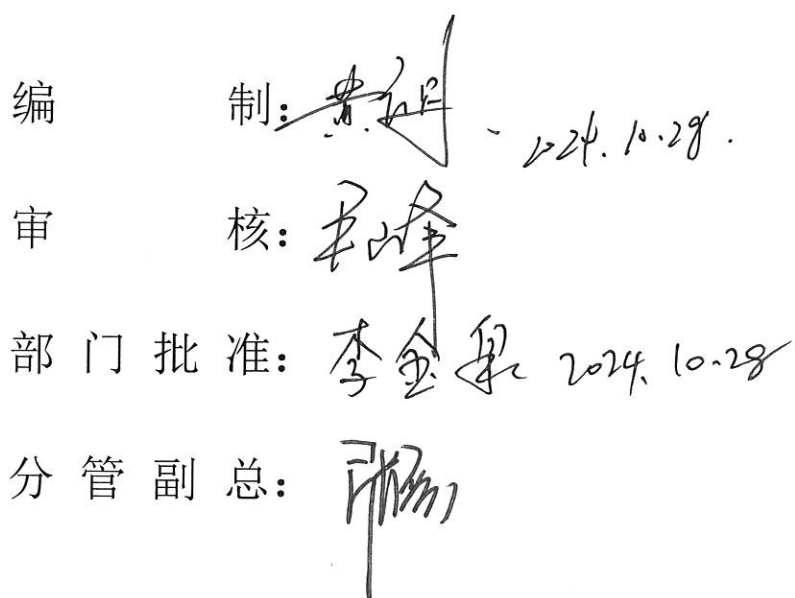 编制: 黄 2024.10.28.
审核: 峰
部门批准: 李金泉 2024.10.28
分管副总: